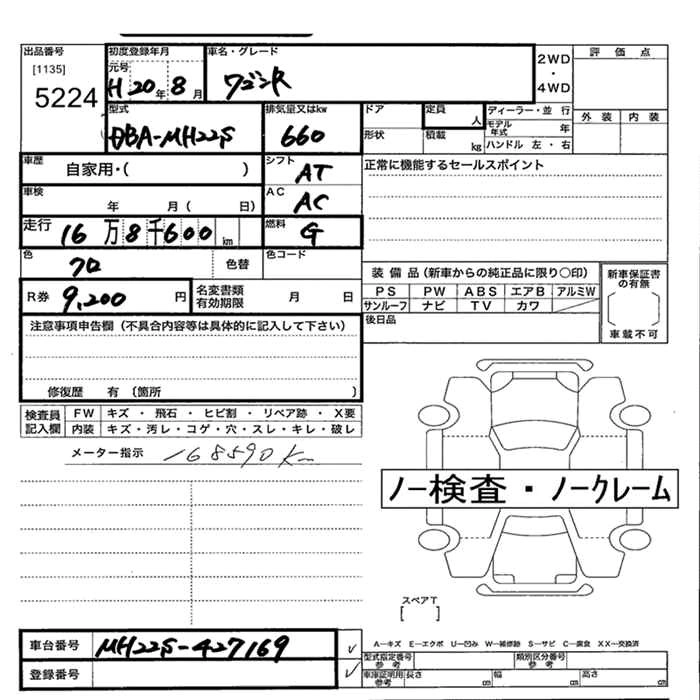 出品番号
[1135]
5224
初度登録年月
元号
H 20 年 8 月
車名・グレード
ワゴンR
2WD
・
4WD
評価点
外装 内装
型式
DBA-MH22S
排気量又はkw
660
ドア
形状
定員
人
積載
kg
ディーラー・並行
モデル年式 年
ハンドル 左・右
車歴
自家用・( )
シフト
AT
正常に機能するセールスポイント
車検
年 月( 日)
AC
AC
走行
16万8千600km
燃料
G
色
クロ
色替
色コード
R券 9,200 円
名変書類有効期限 月 日
装備品(新車からの純正品に限り○印)
PS PW ABS エアB アルミW
サンルーフ ナビ TV カワ
後日品
新車保証書の有無
車載不可
注意事項申告欄(不具合内容等は具体的に記入して下さい)
修復歴 有(箇所 )
検査員記入欄
FW キズ ・ 飛石 ・ ヒビ割 ・ リペア跡 ・ X要
内装 キズ・汚レ・コゲ・穴・スレ・キレ・破レ
メーター指示 168590Km
ノー検査・ノークレーム
スペアT
[ ]
車台番号 MH22S-427169 ✓
登録番号 ✓
A—キズ E—エクボ U—凹み W—補修跡 S—サビ C—腐食 XX—交換済
型式指定番号 参考
類別区分番号 参考
車庫証明用 参考 長さ cm 幅 cm 高さ cm